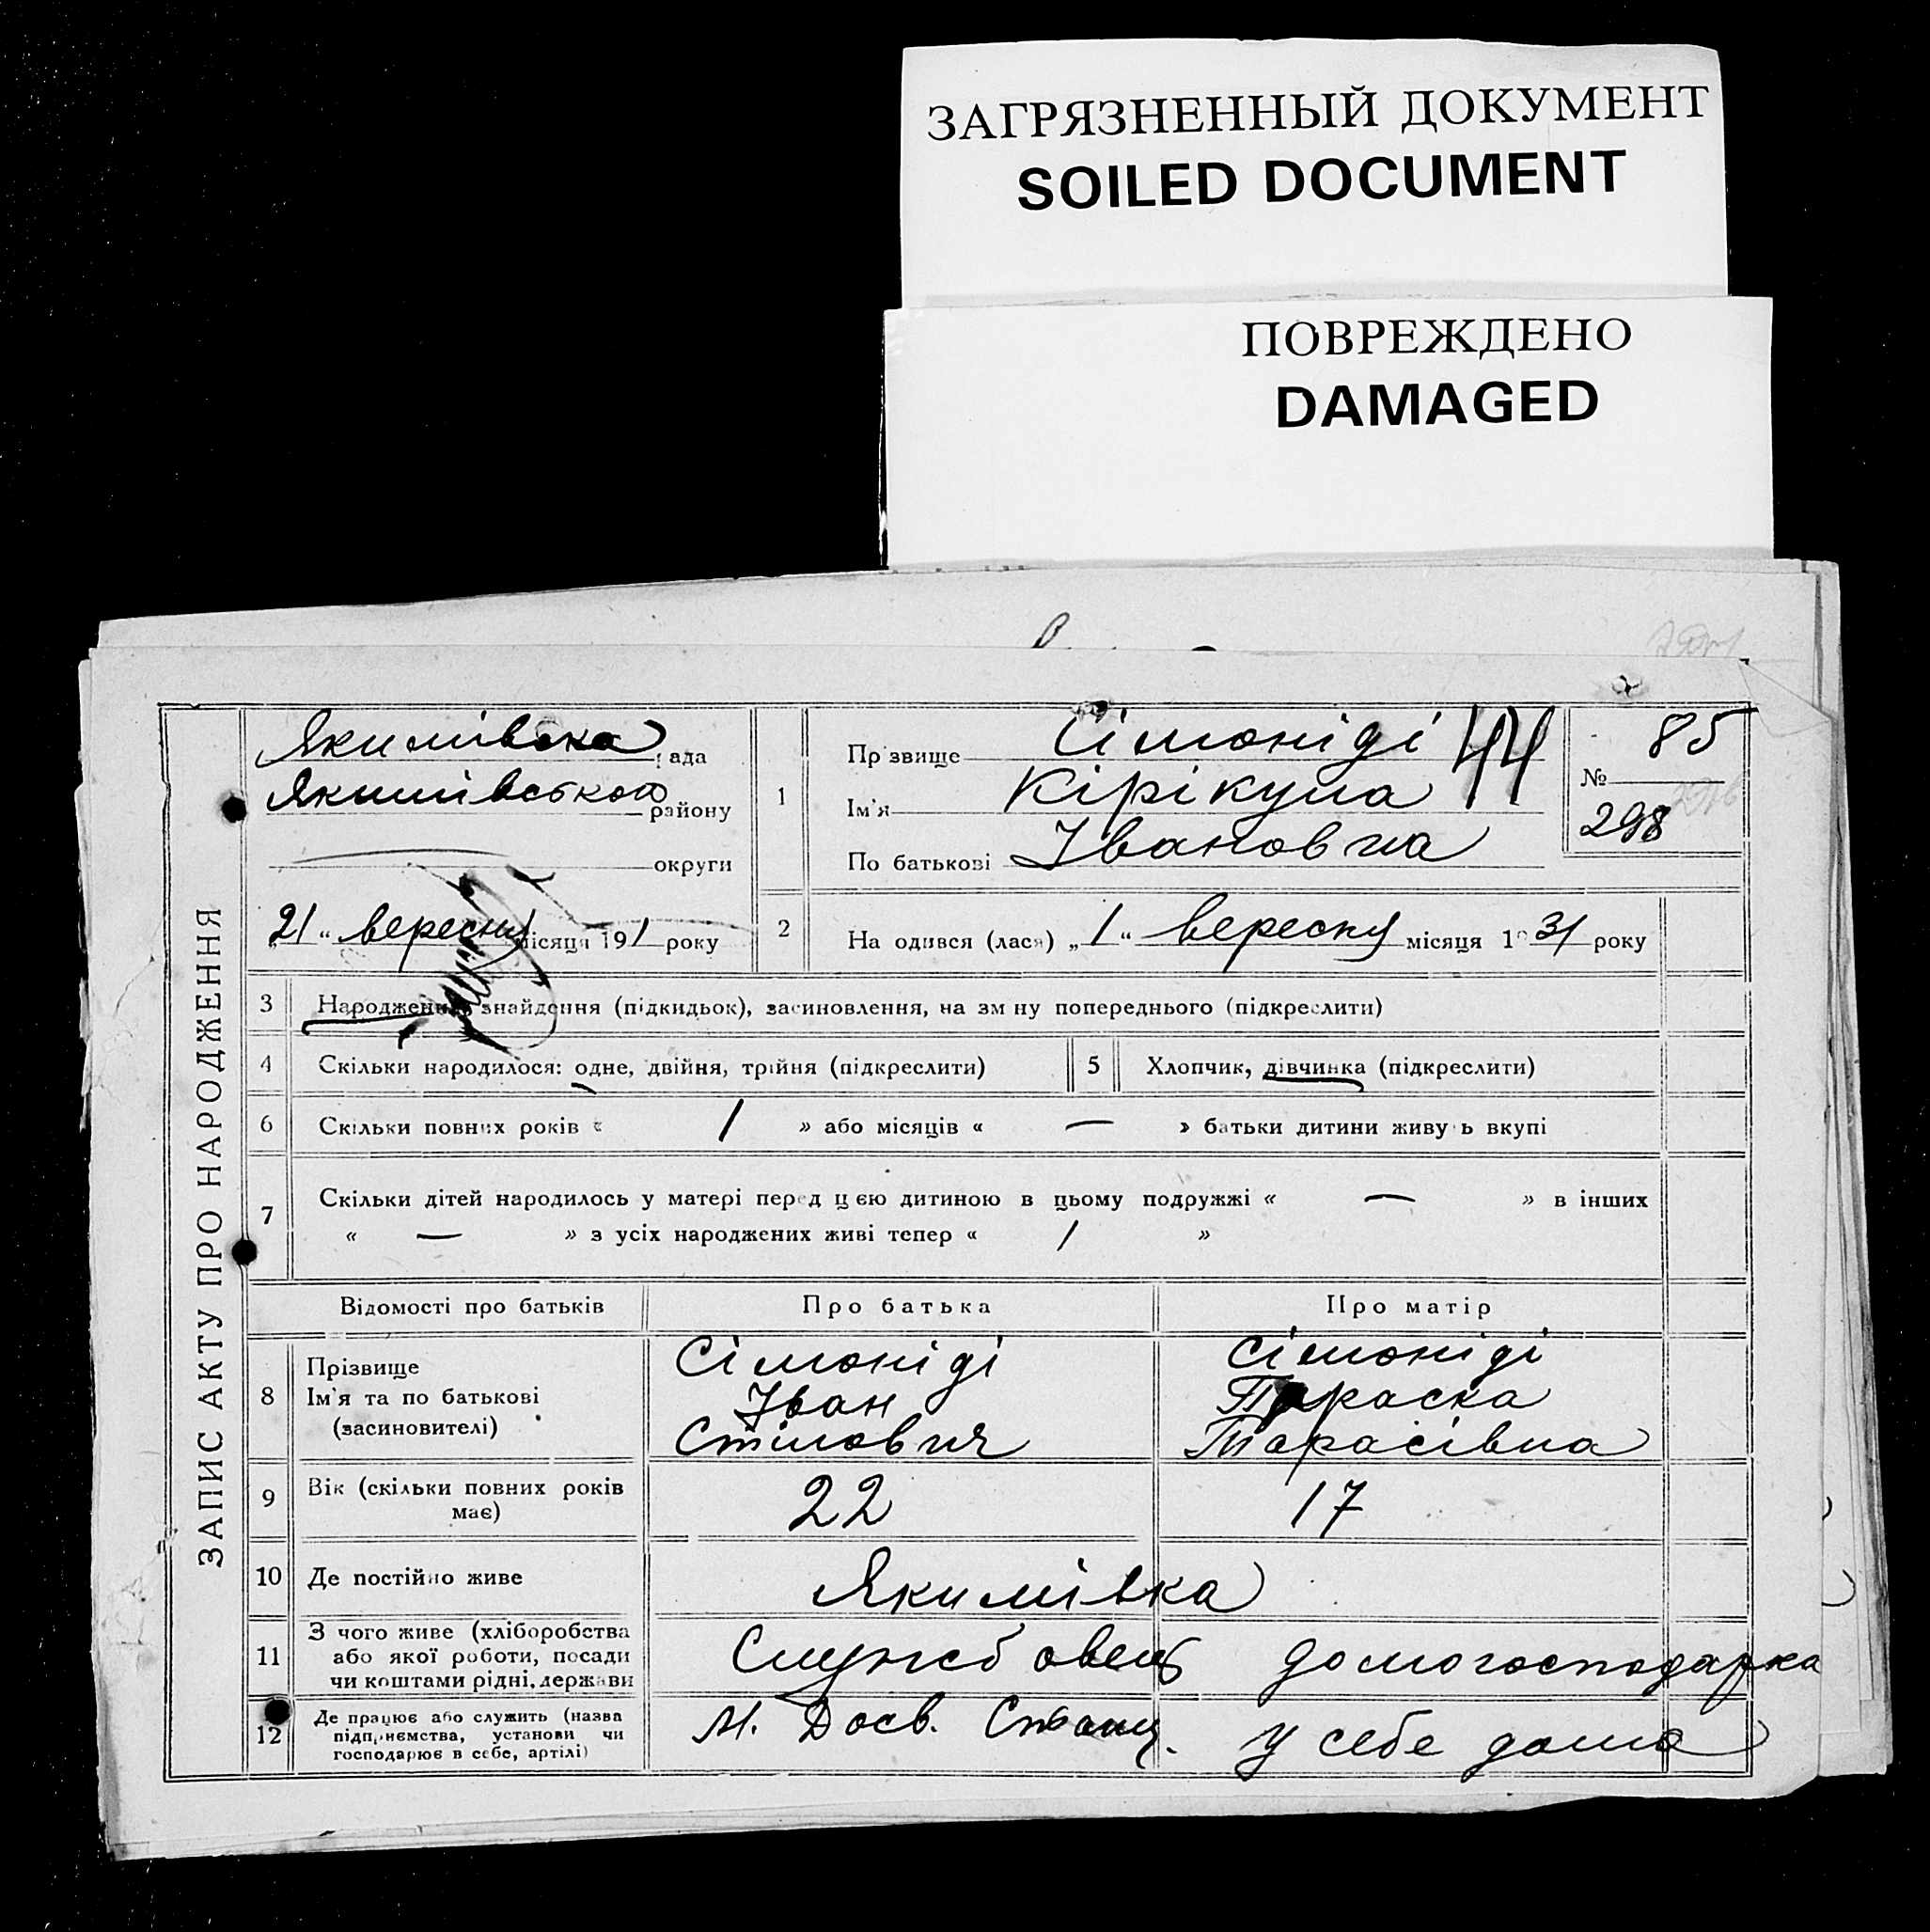 ЗАГРЯЗНЕННЫЙ ДОКУМЕНТ
SOILED DOCUMENT
ПОВРЕЖДЕНО
DAMAGED
ЗАПИС АКТУ ПРО НАРОДЖЕННЯ
Якимівска рада
Якимівського району
округи
21 " вересня місяця 19 1 року
1
Прізвище Сімоніді 44
Ім'я Кірікула
По батькові Івановна
85
№
298
2 Народився (лася) „ 1 " вересня місяця 1931 року
3 Народження, знайдення (підкидьок), засиновлення, на зміну попереднього (підкреслити)
4 Скільки народилося: одне, двійня, трійня (підкреслити) 5 Хлопчик, дівчинка (підкреслити)
6 Скільки повних років « 1 » або місяців « — » батьки дитини живуть вкупі
7 Скільки дітей народилось у матері перед цією дитиною в цьому подружжі « — » в інших
« — » з усіх народжених живі тепер « 1 »
Відомості про батьків Про батька Про матір
8 Прізвище Сімоніді Сімоніді
Ім'я та по батькові Іван Параска
(засиновителі) Стілович Тарасівна
9 Вік (скільки повних років має) 22 17
10 Де постійно живе Якимівка
11 З чого живе (хліборобства
або якої роботи, посади
чи коштами рідні, держави Службовець домогосподарка
12 Де працює або служить (назва
підприємства, установи чи
господарює в себе, артілі) М. Досв. Станц. у себе дома